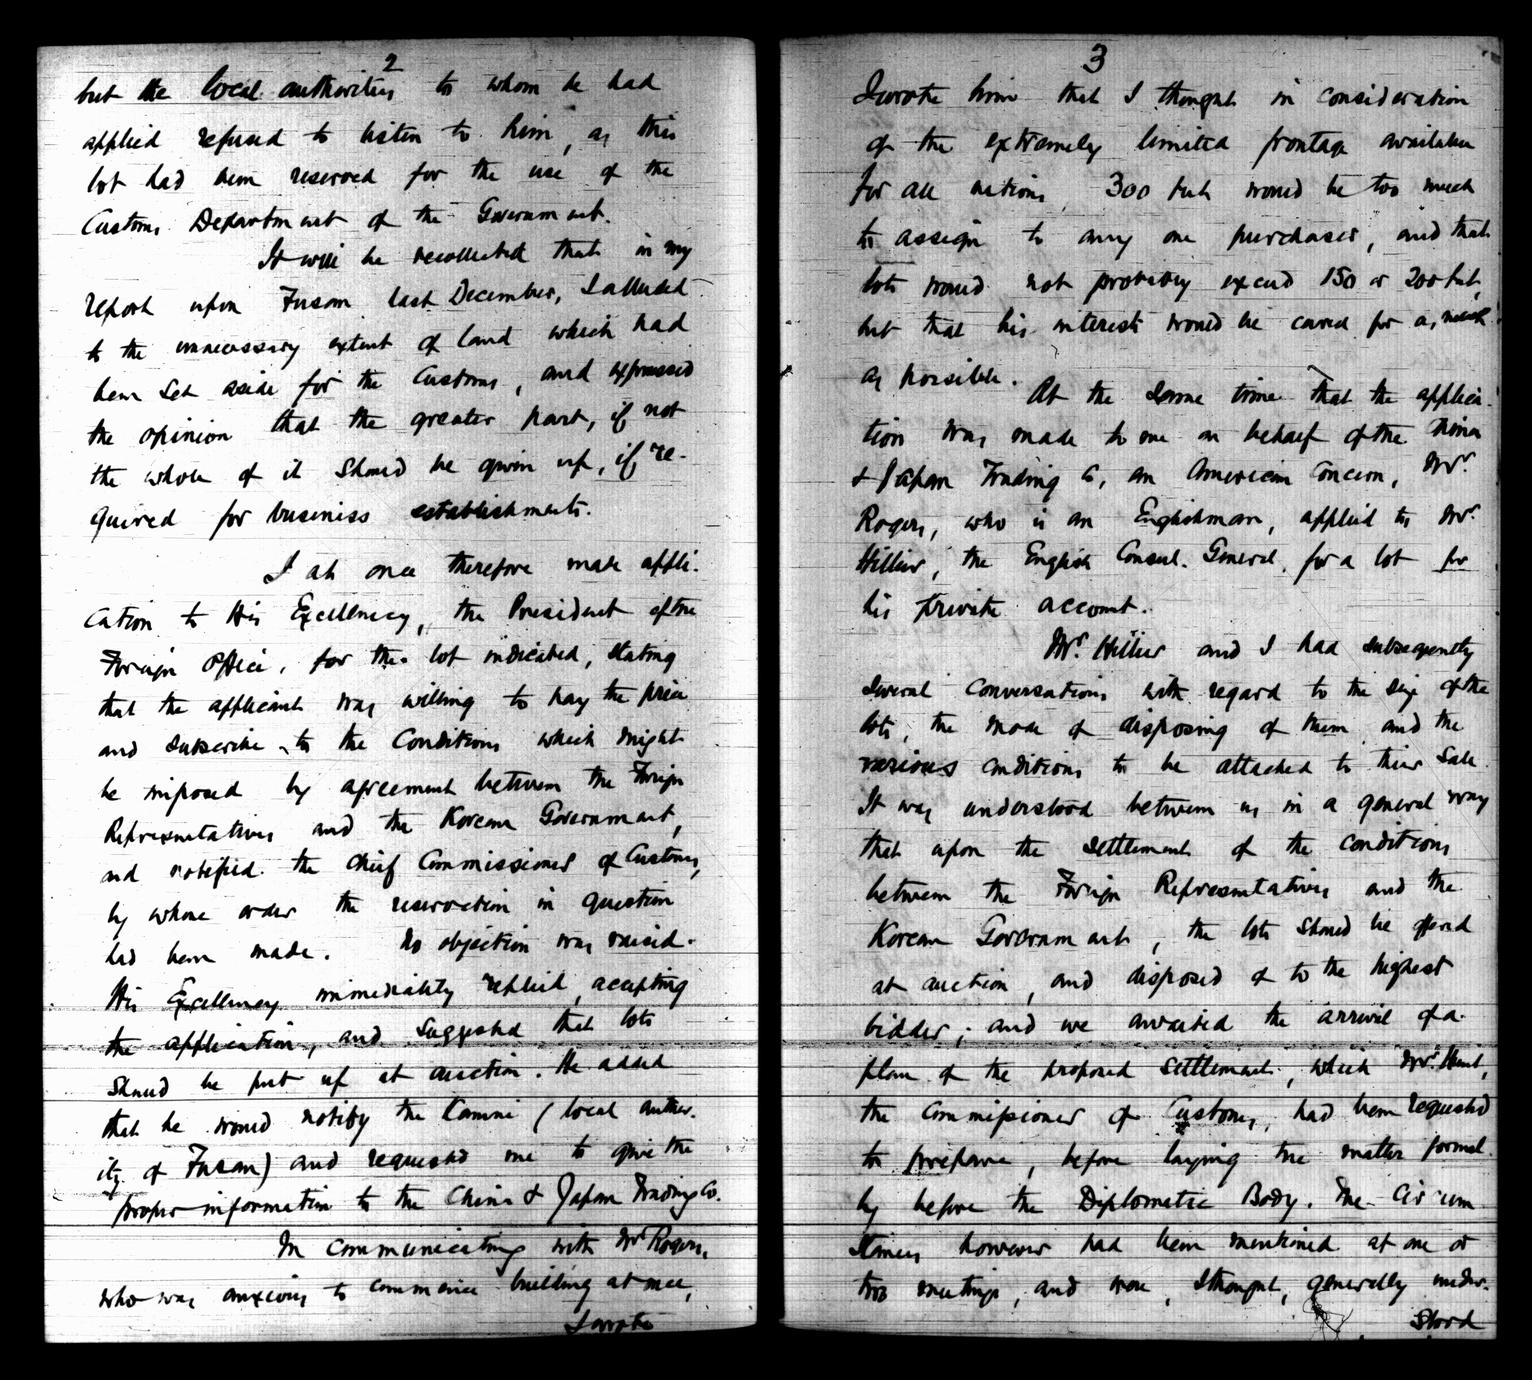 2
but the local authorities to whom he had
applied refused to listen to him, as this
lot had been reserved for the use of the
Customs Department of the Government.
It will be recollected that in my
report upon Fusan last December, I alluded
to the unnecessary extent of land which had
been set aside for the Customs, and expressed
the opinion that the greater part, if not
the whole of it should be given up, if re-
quired for business establishments.
I at once therefore made appli-
cation to His Excellency, the President of the
Foreign Office, for the lot indicated, stating
that the applicant was willing to pay the price
and subscribe to the Conditions which might
be imposed by agreement between the Foreign
Representatives and the Korean Government,
and notified the Chief Commissioner of Customs,
by whose order the reservation in question
had been made. No objection was raised.
His Excellency immediately replied, accepting
the application, and suggested that lots
should be put up at auction. He added
that he would notify the Kamni (local author-
ity of Fusan) and requested me to give the
proper information to the China & Japan Trading Co.
In communicating with Mr. Rogers,
who was anxious to commence building at once,
I wrote
3
I wrote him that I thought in consideration
of the extremely limited frontage available
for all nations, 300 feet would be too much
to assign to any one purchaser, and that
lots would not probably exceed 150 or 200 feet,
but that his interests would be cared for as much
as possible.
At the same time that the applica-
tion was made to me on behalf of the China
& Japan Trading Co, an American Concern, Mr.
Rogers, who is an Englishman, applied to Mr.
Hillier, the English Consul-General, for a lot for
his private account.
Mr. Hillier and I had subsequently
several conversations with regard to the size of the
lots, the mode of disposing of them and the
various conditions to be attached to their sale.
It was understood between us in a general way
that upon the settlement of the conditions
between the Foreign Representatives and the
Korean Government, the lots should be offered
at auction, and disposed of to the highest
bidder; and we awaited the arrival of a
plan of the proposed Settlement, which Mr. Hunt,
the Commissioner of Customs, had been requested
to prepare, before laying the matter formal-
ly before the Diplomatic Body. The Circum
stances however had been mentioned at one or
two meetings, and were, I thought, generally under-
stood